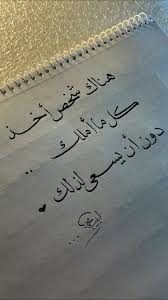 هناك شخص أخذ
كل ما أملك ..
دون أن يسعى لذلك